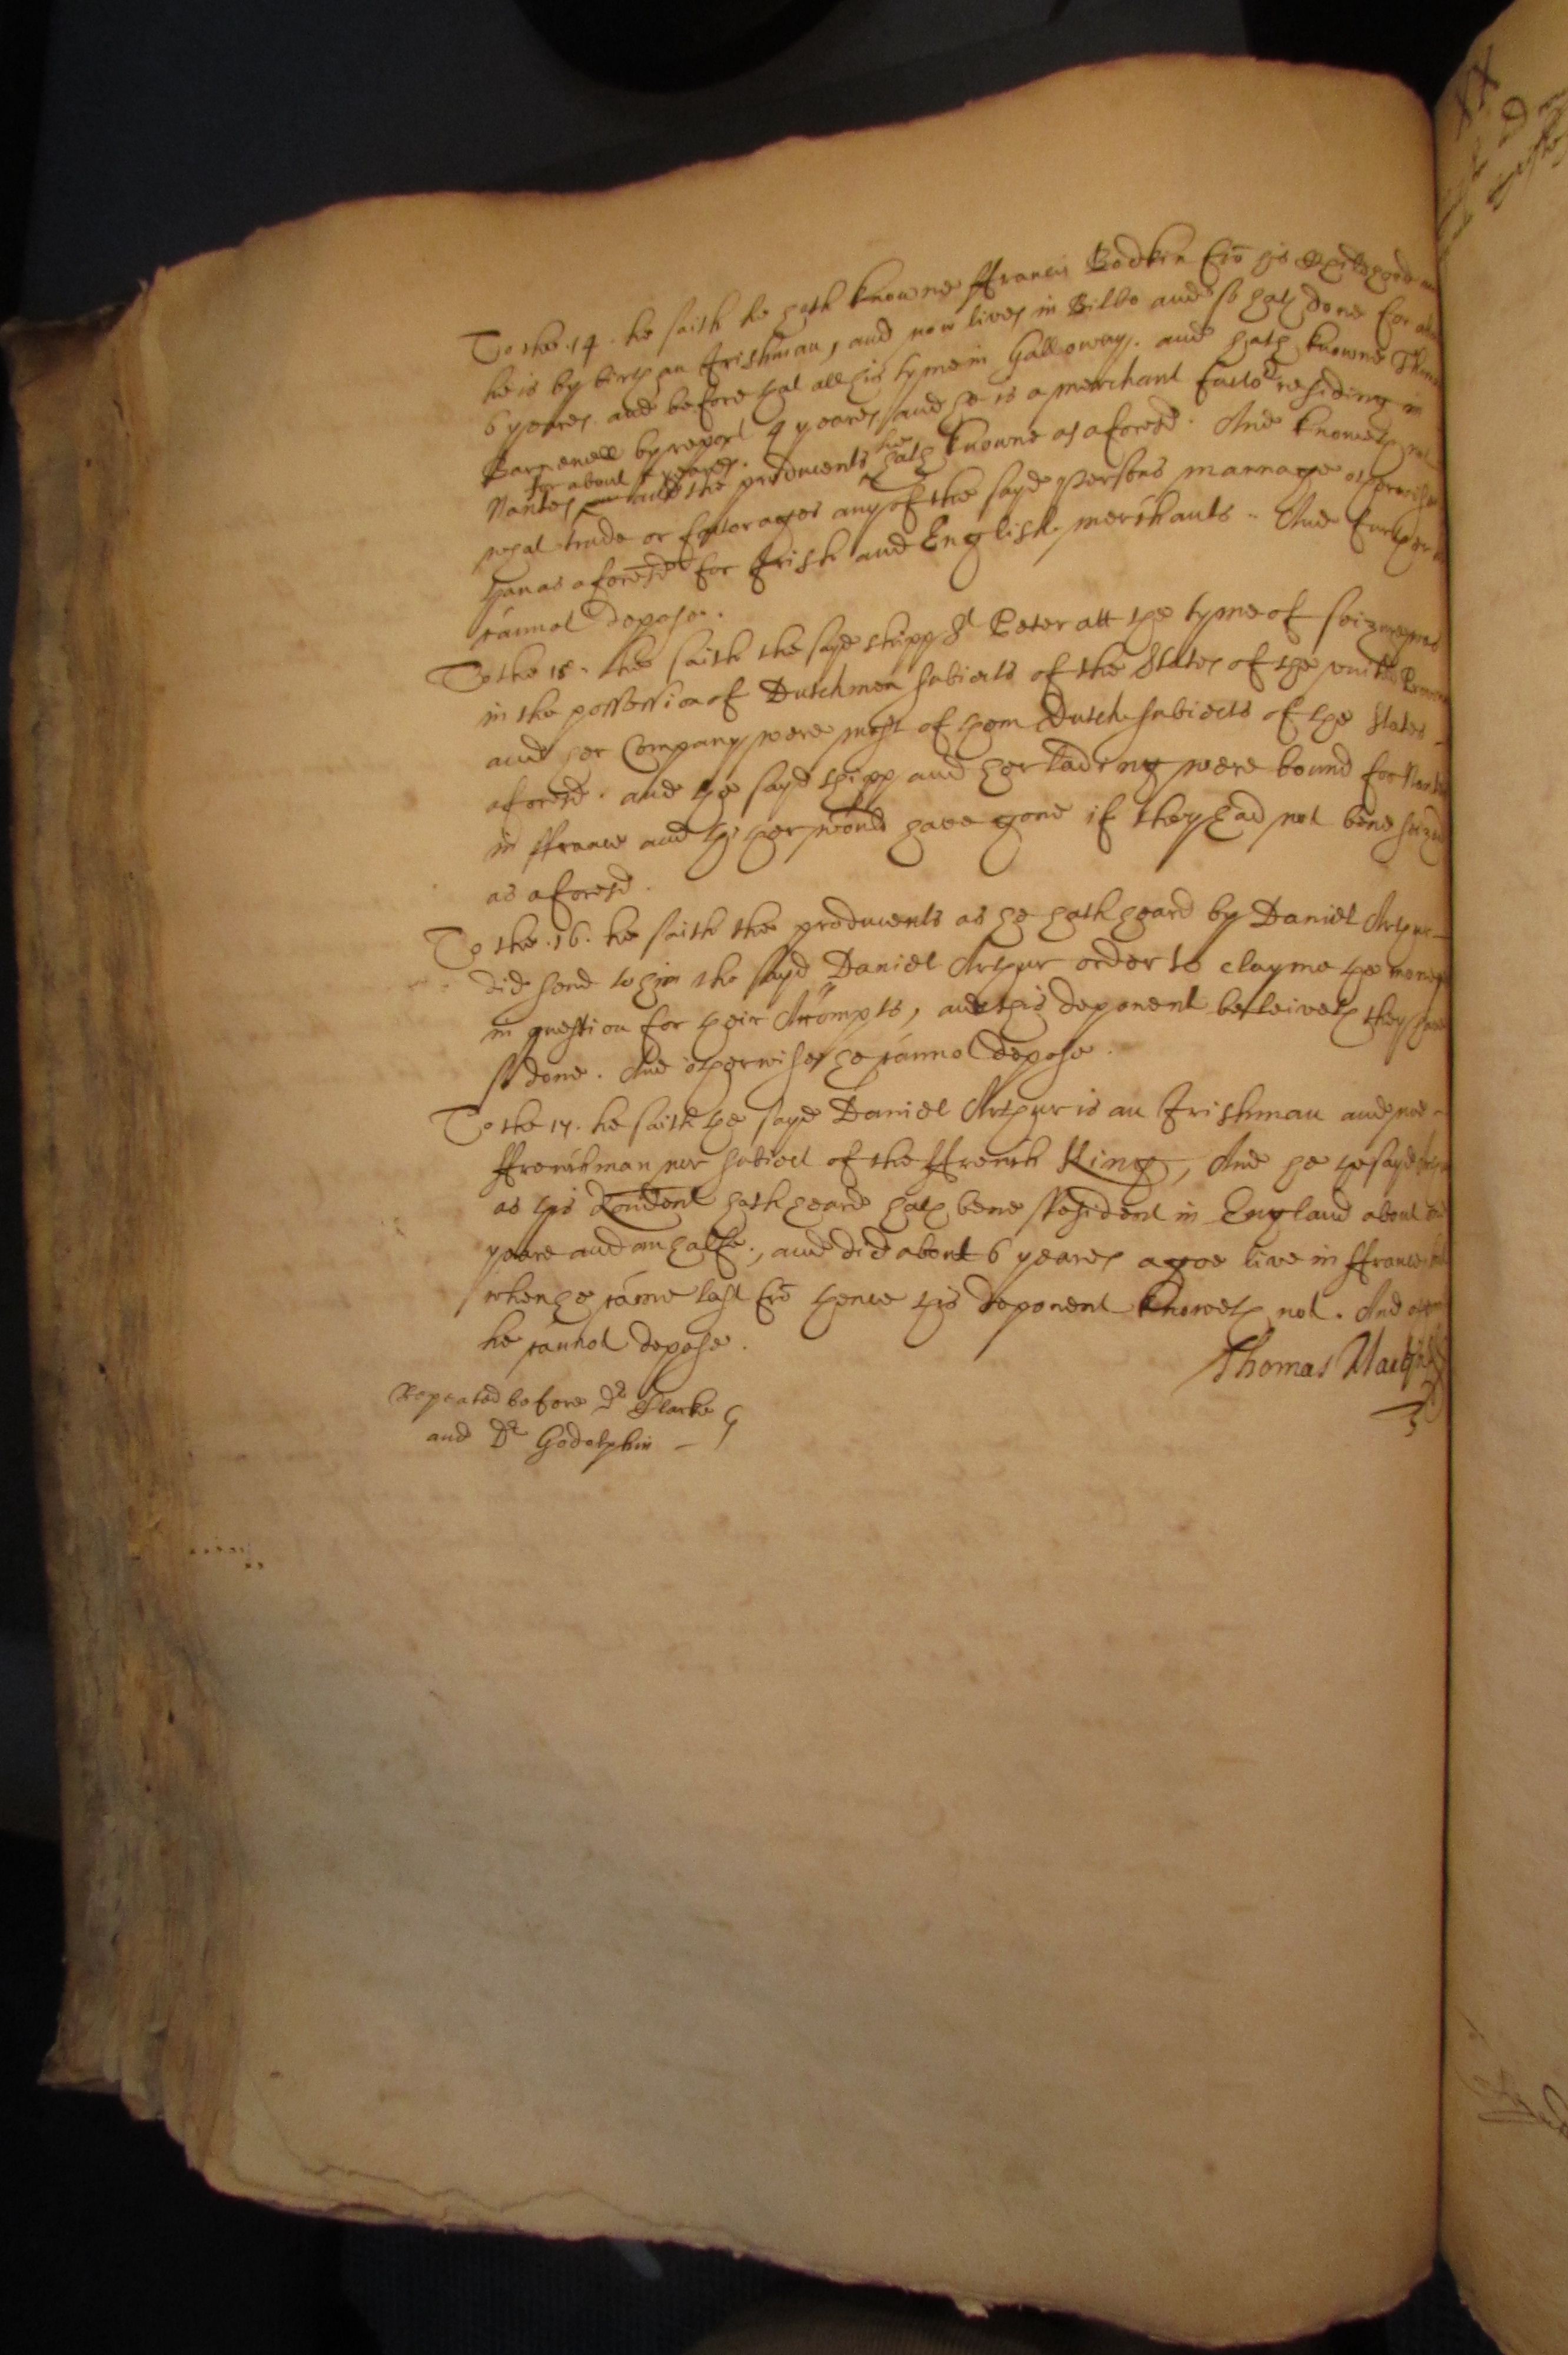 To the .14. he saith he hath knowne ffrancis Bodkin frō his Childhood and
he is by birth an Irishman, and now lives in Bilbo and so hath done for about
6 yeares and before that all his tyme in Galloway. and hath knowne Thomas
Barnewell by report 4 yeares and he is a merchant factor residing in
for about yeares.
Nantes and the producents hee hath knowne as aforesd. And knoweth not
what trade or factorages any of the sayd persons mannage or
than as aforesd for Irish and English merchants. And further
cannot depose.
To the 15. hee saith the sayd shipp St Peter att the tyme of seizure was
in the possession of Dutchmen subiects of the States of the united
and her Company were most of them Dutch subiects of the States
aforesd. and the sayd shipp and her lading were bound for Nantes
in ffrance and thither would have gone if they had not bene seized
as aforesd.
To the .16. he saith the producents as he hath heard by Daniel Arthur
did send to him the sayd Daniel Arthur order to clayme the moneys
in question for their Accompts, and this deponent beleiveth they have
so done. And otherwise he cannot depose.
To the 17. he saith the sayd Daniel Arthur is an Irishman and noe
ffrenchman nor subiect of the ffrench King, And he the sayd
as this Rendent hath heard hath bene resident in England about
yeare and an halfe., and did about 6 yeares agoe live in ffrance, but
when he came last frō thence this deponent knoweth not. And
he cannot depose.
Thomas
Repeated before Dr Clarke
and Dr Godolphin